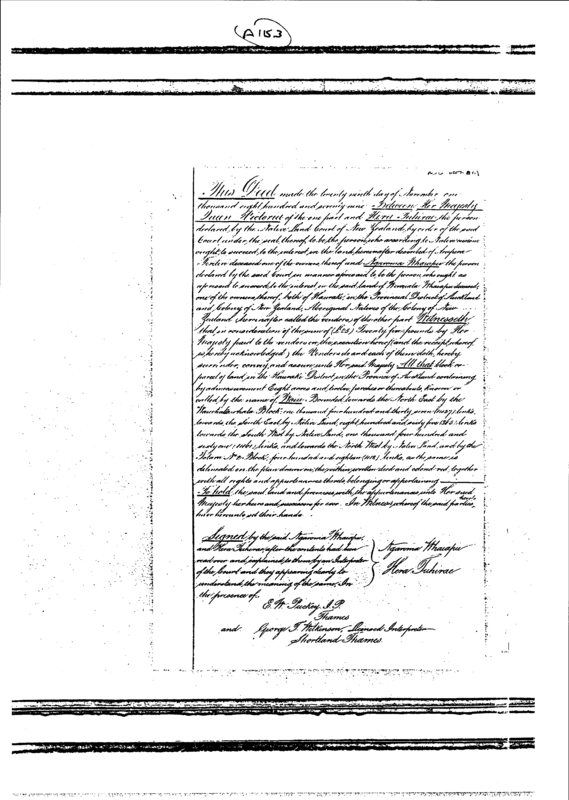 A 1153
This Deed made the twenty ninth day of November one
thousand eight hundred and seventy nine Between Her Majesty
Queen Victoria of the one part and Hera Tuhirae the person
declared by the Native Land Court of New Zealand by order of the said
Court under the seal thereof to be the person who according to Native custom
ought to succeed to the interest in the land hereinafter described of
deceased one of the owners thereof and Ngaroma Whaiapu the person
declared by the said Court in manner aforesaid to be the person who ought as
aforesaid to succeed to the interest in the said land of Whaiapu deceased
one of the owners thereof both of Hauraki in the Provincial District of Auckland
and Colony of New Zealand, Aboriginal Natives of the Colony of New
Zealand hereinafter called the vendors of the other part Witnesseth
that in consideration of the sum of (£25) Twenty five pounds by Her
Majesty paid to the vendors on the execution hereof (and the receipt whereof
is hereby acknowledged) the Vendors do and each of them doth hereby
surrender, convey, and assure unto Her said Majesty All that block or
parcel of land in the Hauraki District in the Province of Auckland containing
by admeasurement Eight acres and twelve perches or thereabouts known or
called by the name of Bounded towards the North East by the
Block one thousand four hundred and thirty seven (1437) links,
towards the South East by Native Land, eight hundred and sixty five links
towards the South West by Native Land, one thousand four hundred and
sixty one (1461) links, and towards the North West by Native Land, and by the
No Block, four hundred and eighteen (418) links, as the same is
delineated on the plan drawn on the within written deed and edged red, together
with all rights and appurtenances thereto belonging or appertaining
To hold the said land and premises with the appurtenances unto Her said
Majesty her heirs and successors for ever. In Witness whereof the said parties
have hereunto set their hands
Signed by the said Ngaroma Whaiapu
and Hera Tuhirae after the contents had been
read over and explained to them by an Interpreter
of the Court and they appearing clearly to
understand the meaning of the same In
the presence of
Ngaroma Whaiapu
Hera Tuhirae
E. W. Puckey J.P.
Thames
and George T. Wilkinson, Licensed Interpreter
Shortland Thames